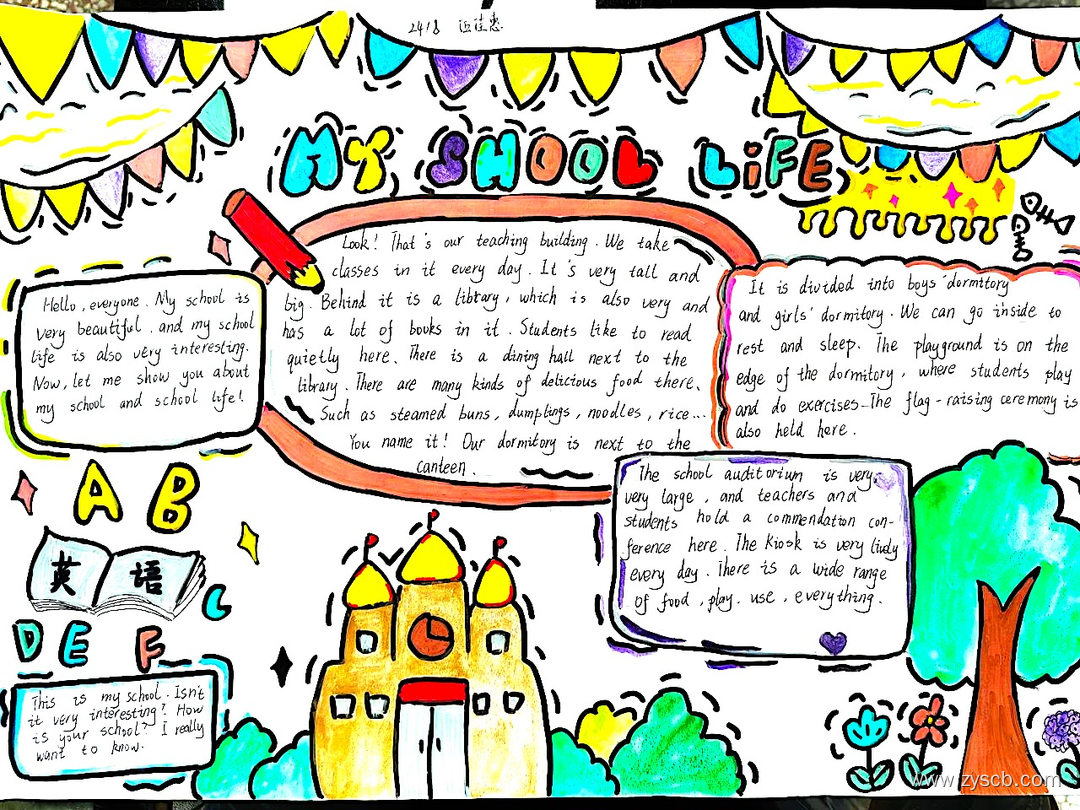 2418
MY SHOOL LiFE
Hello, everyone. My school is
very beautiful. and my school
life is also very interesting.
Now, let me show you about
my school and school life!
Look! That's our teaching building. We take
classes in it every day. It's very tall and
big. Behind it is a library, which is also very and
has a lot of books in it. Students like to read
quietly here. There is a dining hall next to the
library. There are many kinds of delicious food there.
Such as steamed buns, dumplings, noodles, rice...
You name it! Our dormitory is next to the
canteen.
It is divided into boys' dormitory
and girls' dormitory. We can go inside to
rest and sleep. The playground is on the
edge of the dormitory, where students play
and do exercises. The flag-raising ceremony is
also held here.
The school auditorium is very,
very large, and teachers and
students hold a commendation con-
ference here. The Kiosk is very lively
every day. There is a wide range
of food, play. use. everything.
A B
英语
C
D E F
This is my school. Isn't
it very interesting? How
is your school? I really
want to know.
www.zyscb.com